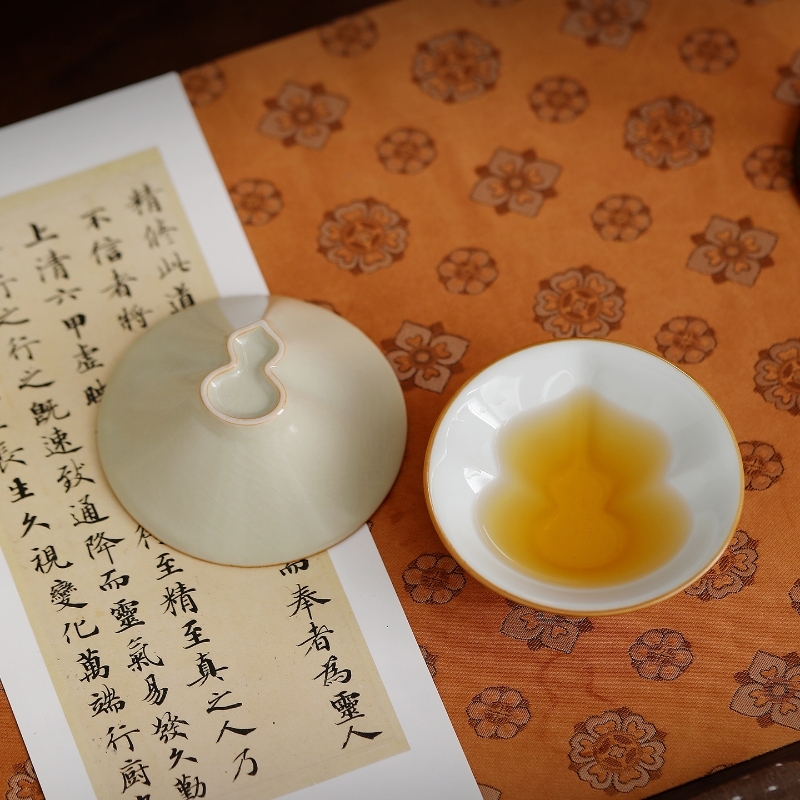 精修此道
而奉者為靈人
不信者將
上清六甲虛
至精至真之人乃
行之行之既速致通降而靈氣易發久勤
長生久視變化萬端行廚